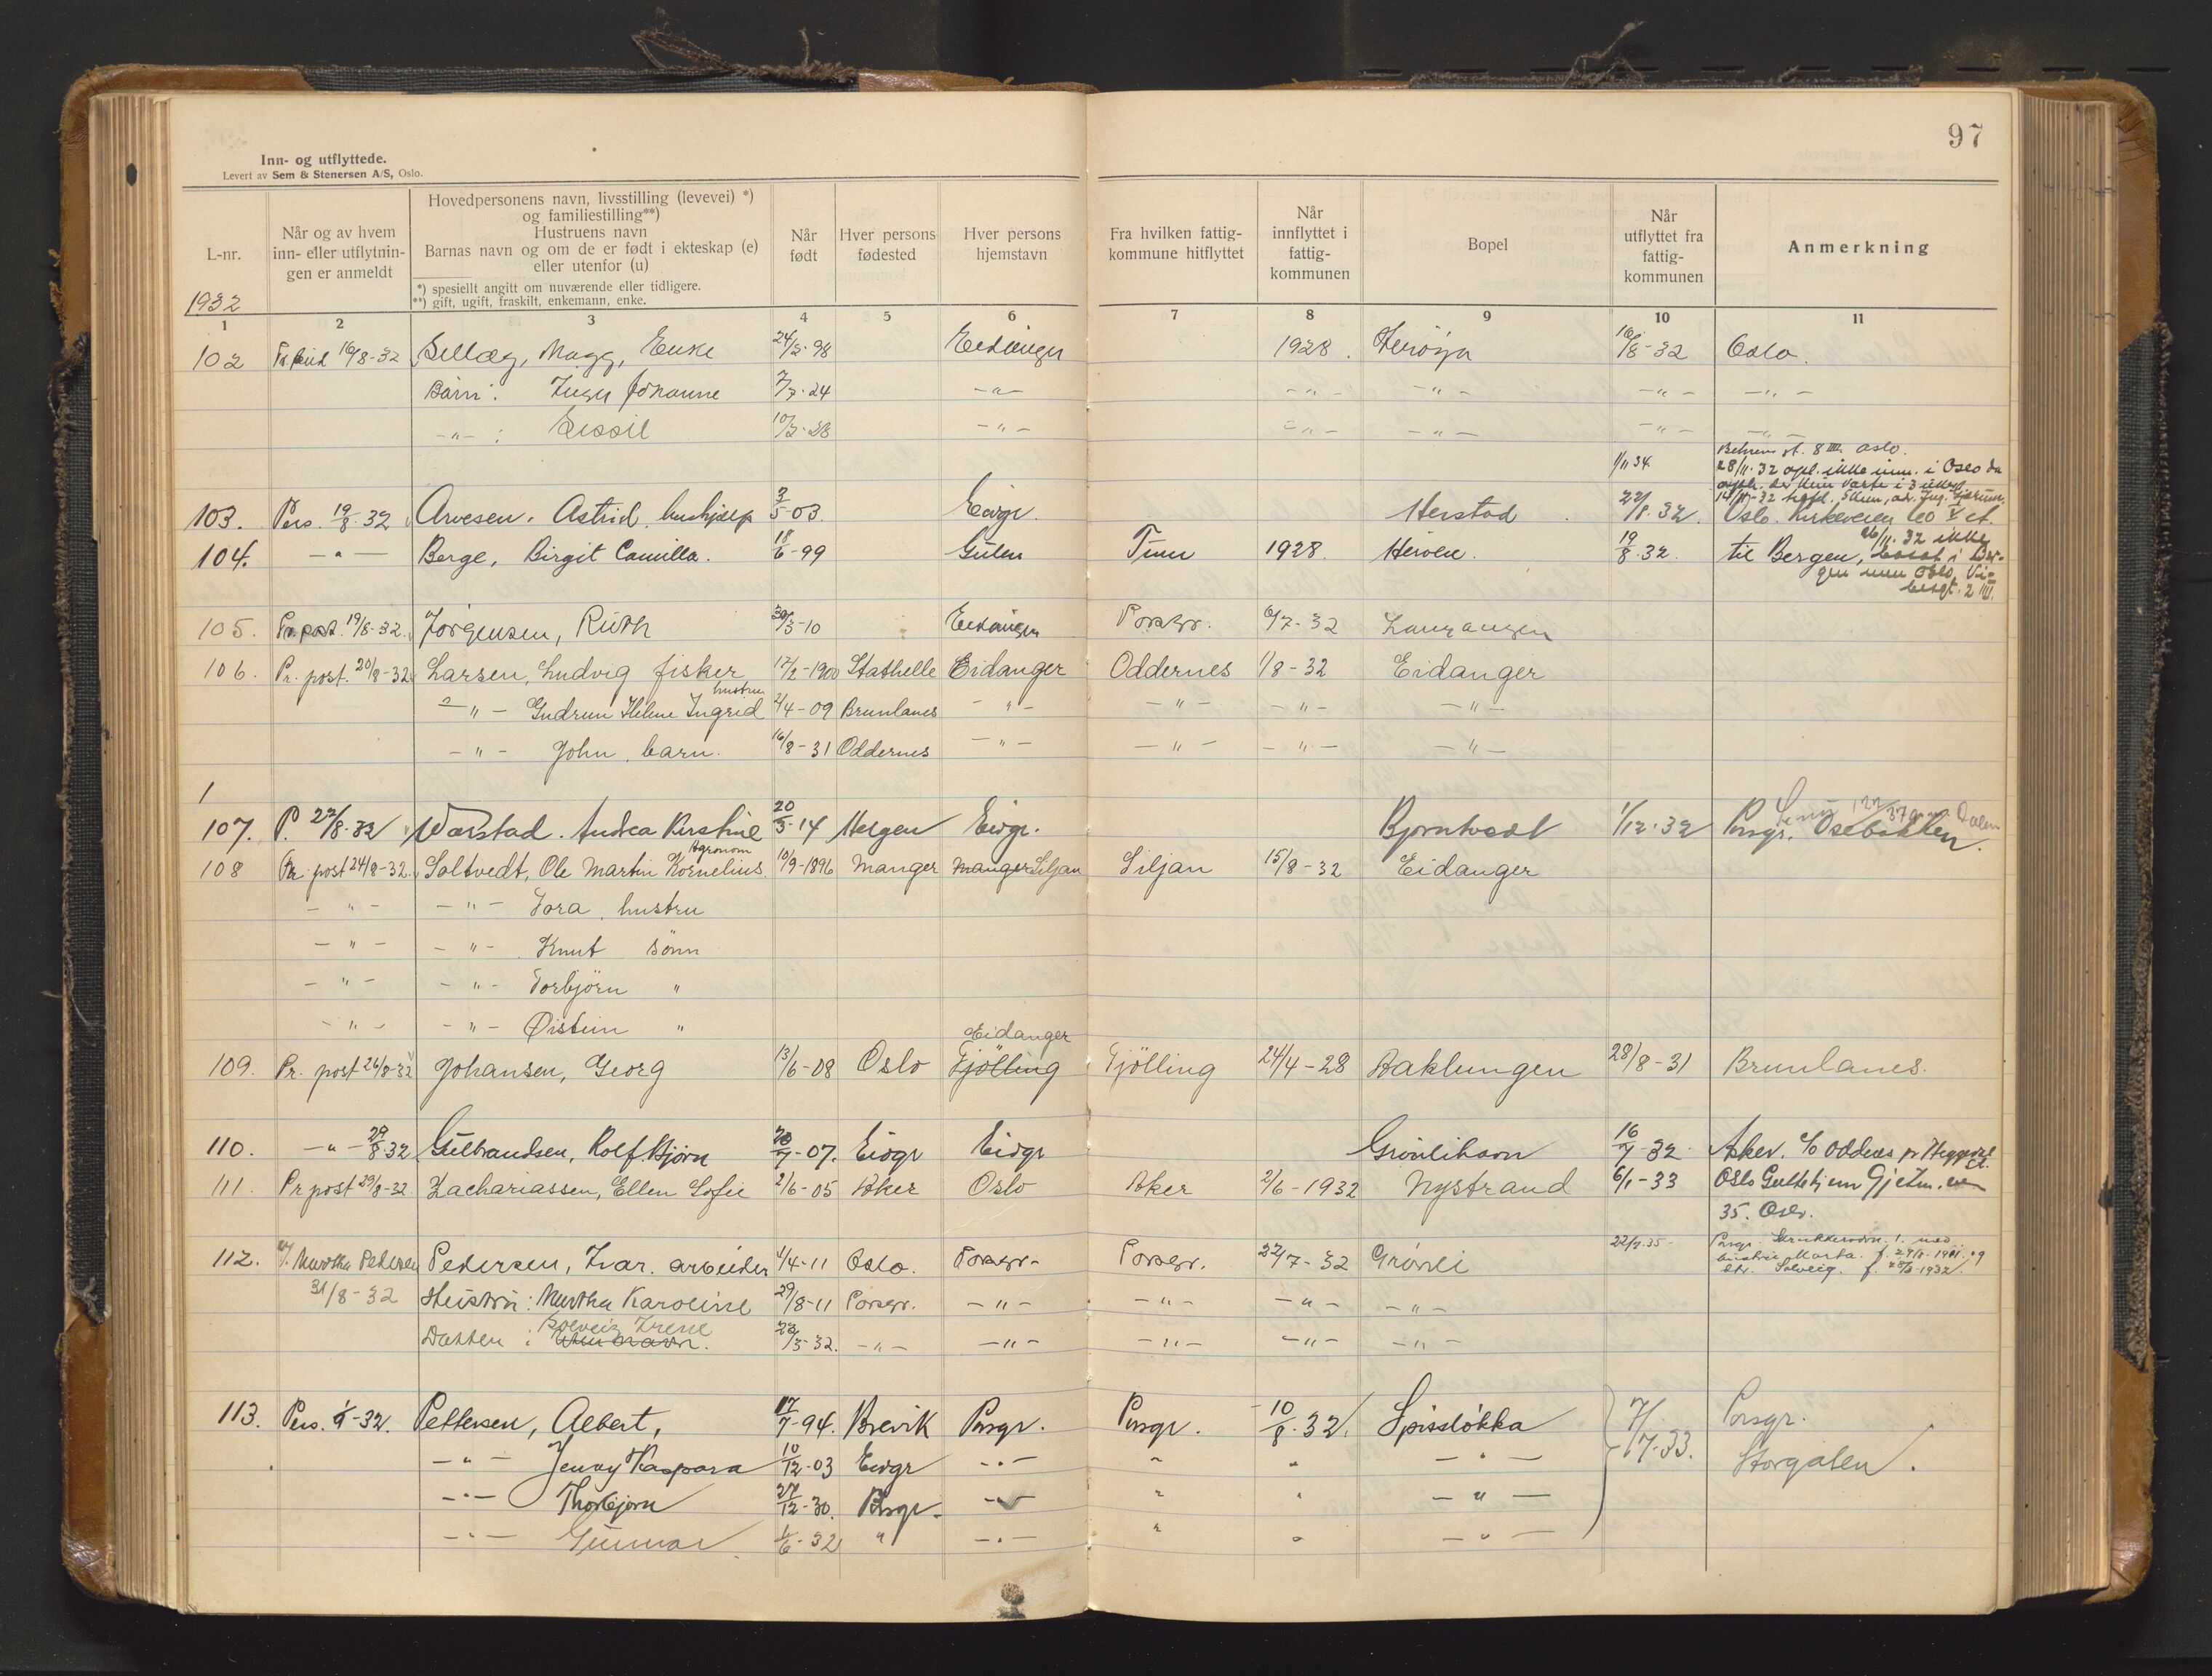 97
Inn- og utflyttede.
Levert av Sem & Stenersen A/S, Oslo.
L-nr.
1932
Når og av hvem inn- eller utflytningen er anmeldt
Hovedpersonens navn, livsstilling (levevei) *) og familiestilling**)
Hustruens navn
Barnas navn og om de er født i ekteskap (e) eller utenfor (u)
*) spesiellt angitt om nuværende eller tidligere.
**) gift, ugift, fraskilt, enkemann, enke.
Når født
Hver persons fødested
Hver persons hjemstavn
Fra hvilken fattigkommune hitflyttet
Når innflyttet i fattigkommunen
Bopel
Når utflyttet fra fattigkommunen
Anmerkning
1 2 3 4 5 6 7 8 9 10 11
102 16/8-32 Sellæg, Magg, Enke 24/2-98 Eidanger 1928. Herøya 16/8-32 Oslo.
Barn: Inger Johanne 7/7-24 -"- -"- -"- -"- -"-
-"- : Eissil -"- -"- -"- -"- -"-
1/11 34. 8 III. Oslo.
28/11-32 opl. ikke inn. i Oslo da
103. Pers. 19/8-32 Arvesen, Astrid, hushjælp 3/5-03. Eidgr. Herstad 22/8.32. Oslo. Kirkeveien
104. -"- Berge, Birgit Camilla. 18/6-99 Gulen Tinn 1928. Heroen. 19/8-32. til Bergen, 26/11.32 ikke
bosat i Bergen men Oslo,
105. Pr. post. 19/8-32. Jörgensen, Ruth 30/3-10 Eidanger Porsgr. 6/7-32 Langangen
106. Pr. post. 20/8-32 Larsen, Ludvig fisker 17/2-1900 Stathelle Eidanger Oddernes 1/8-32 Eidanger
-"- Gudrun Helene Ingrid hustru 2/4-09 Brunlanes -"- -"- -"- -"-
-"- John, barn. 16/8-31 Oddernes -"- -"- -"- -"-
1
107. P. 22/8-32 Værstad. Andrea Kirstine 20/3-14 Helgen Eidgr. Bjørntvedt 1/12-32 Porsgr. Osebakken.
108 Pr. post 24/8-32. Saltvedt, Ole Martin Kornelius. Agronom 10/9-1896 Manger Manger Siljan Siljan 15/8-32 Eidanger
-"- -"- Tora, hustru
-"- -"- Knut sönn
-"- -"- Torbjörn "
-"- -"- Øistein "
109. Pr. post 26/8-32 Johansen, Georg 13/6-08 Oslo Eidanger Tjölling Tjölling 24/4-28 Baklungen 28/8-31 Brunlanes.
110. -"- 29/8-32 Gulbrandsen, Rolf Bjørn 20/7-07. Eidgr Eidgr Grønlihavn 16/7-32 Asker.
111. Pr post 29/8-32 Zachariassen, Ellen Sofie 2/6-05 Aker Oslo Aker 2/6-1932 Nystrand 6/1-33 Oslo
35. Oslo.
112. Martha Pedersen Pedersen, Ivar. arbeider 4/4-11 Oslo. Porsgr. Porsgr. 22/7-32 Grønli 22/7.35 Porsgr.
31/8-32 Hustru: Martha Karoline 29/8-11 Porsgr. -"- -"- -"- -"-
hustru Marta. f. 29/8-1911. og
dtr. Solveig. f. 23/3-1932.
Datter: Solveig Irene 23/3-32. -"- -"- -"- -"- -"-
113. Pers. 1/9-32. Pettersen, Albert, 17/7-94. Brevik Porsgr. Porsgr. 10/8.32. Spissløkka 7/ 17.33. Porsgr. Storgaten.
-"- Jenny Kaspara 10/12-03 Eidgr -"- " " -"-
-"- Thorbjørn 27/12-30. Porsgr. -"- " " -"-
-"- Gunnar 4/6-32 " -"- " " -"-